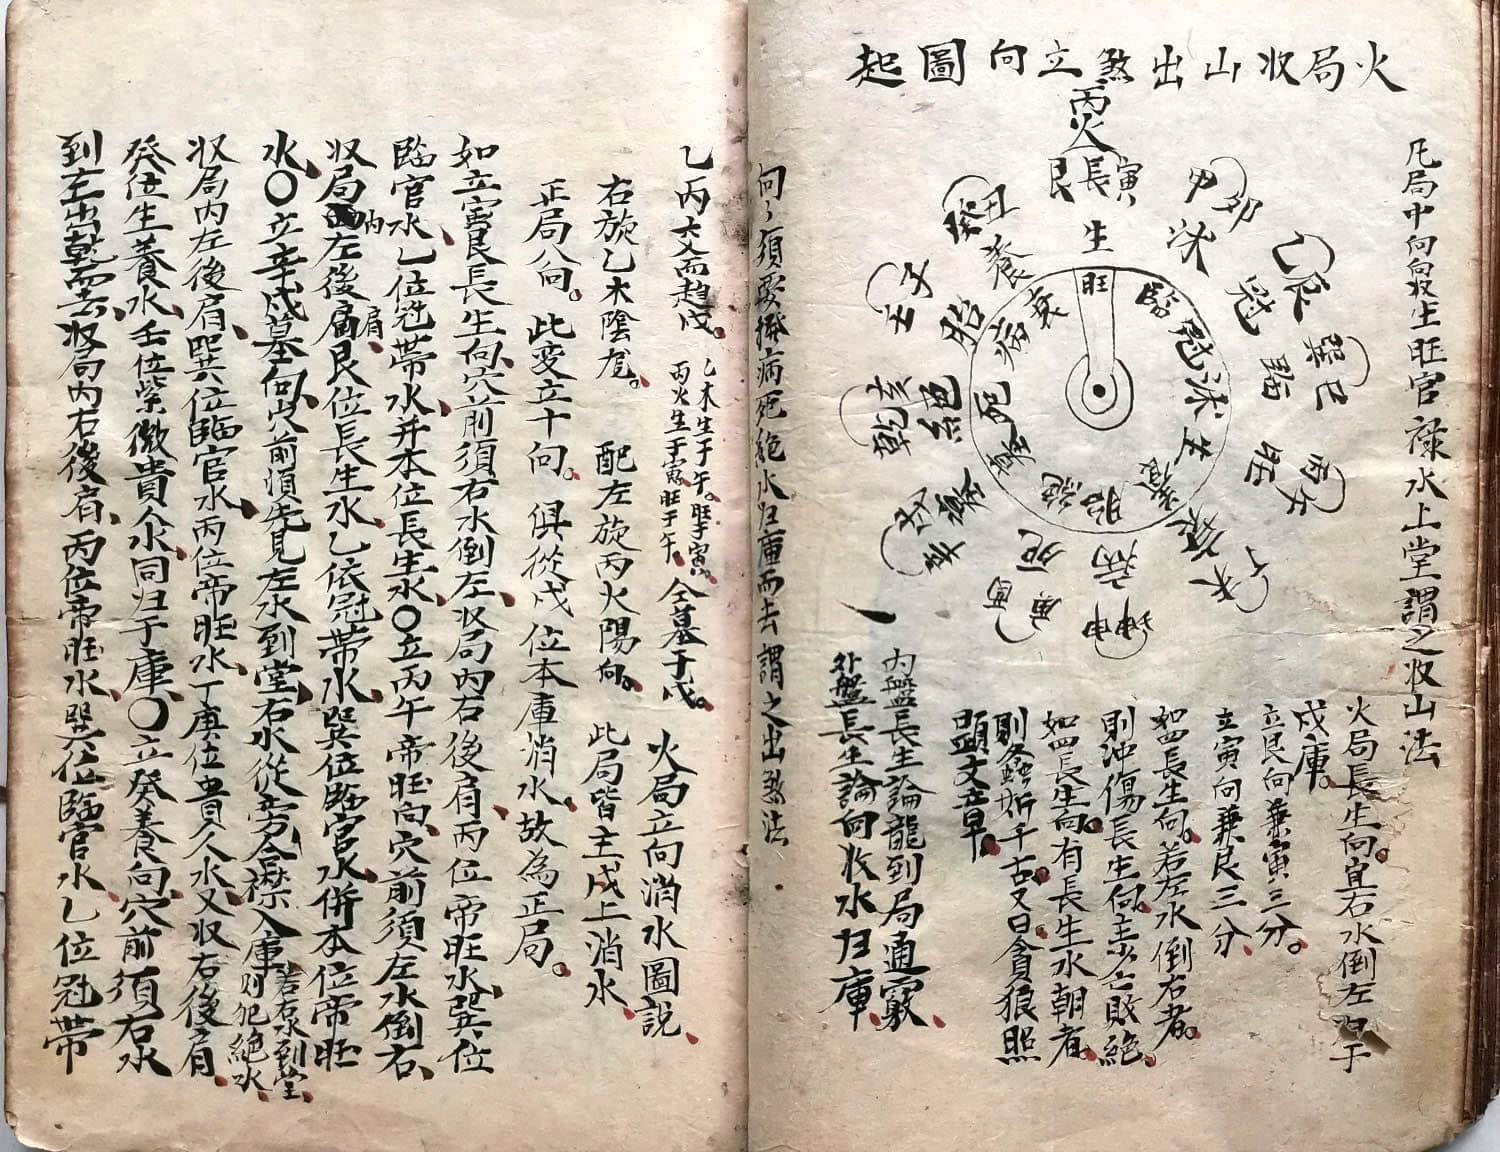 火局收山出煞立向圖起
凡局中向向收生旺官祿水上堂謂之收山法
丙火
寅長艮
生
甲卯
沐
乙辰
冠
巽巳
臨
丙午
旺
丁未
衰
坤申
病
庚酉
死
辛戌
墓
乾亥
絕
壬子
胎
癸丑
養
旺
臨
冠
沐
生
養
胎
絕
墓
死
病
衰
火局長生向宜右水倒左于
戌庫。
立艮向兼寅三分。
立寅向兼艮三分、
如四長生向。若左水倒右者。
則沖傷長生向。主少亡敗絕、
如四長生向。有長生水朝者。
則螽斯千古。又曰貪狼照
顯文章。
內盤長生論龍到局通竅、
外盤長生論向收水归庫、
向々須要撥病死絕水归庫而去謂之出煞法
乙丙交而趋戌、
乙木生于午。旺于寅、
丙火生于寅旺于午。
仝墓于戌。
火局立向消水圖説、
右旋乙木陰龙。配左旋丙火陽向。此局皆主戌上消水、
正局八向。此变立十向。俱從戌位本庫消水、故為正局。
如立寅艮長生向、穴前須右水倒左、收局内右後肩、丙位帝旺水、巽位
臨官水、乙位冠帶水、并本位長生水、〇立丙午帝旺向、穴前須左水倒右、
收局内左後肩、艮位長生水、乙依冠帶水、巽位臨官水、併本位帝旺
水、〇立辛戌墓向、穴前須先見左水到堂、右水從旁合襟入庫、
若右水到堂、
则犯絕水、
收局内左後肩、巽位臨官水、丙位帝旺水、丁庚位貴人水、又收右後肩、
癸位生養水、壬位紫微貴人水、同归于庫、〇立癸養向、穴前須右水
到左、出乾而去、收局内右後肩、丙位帝旺水、巽位臨官水、乙位冠帶